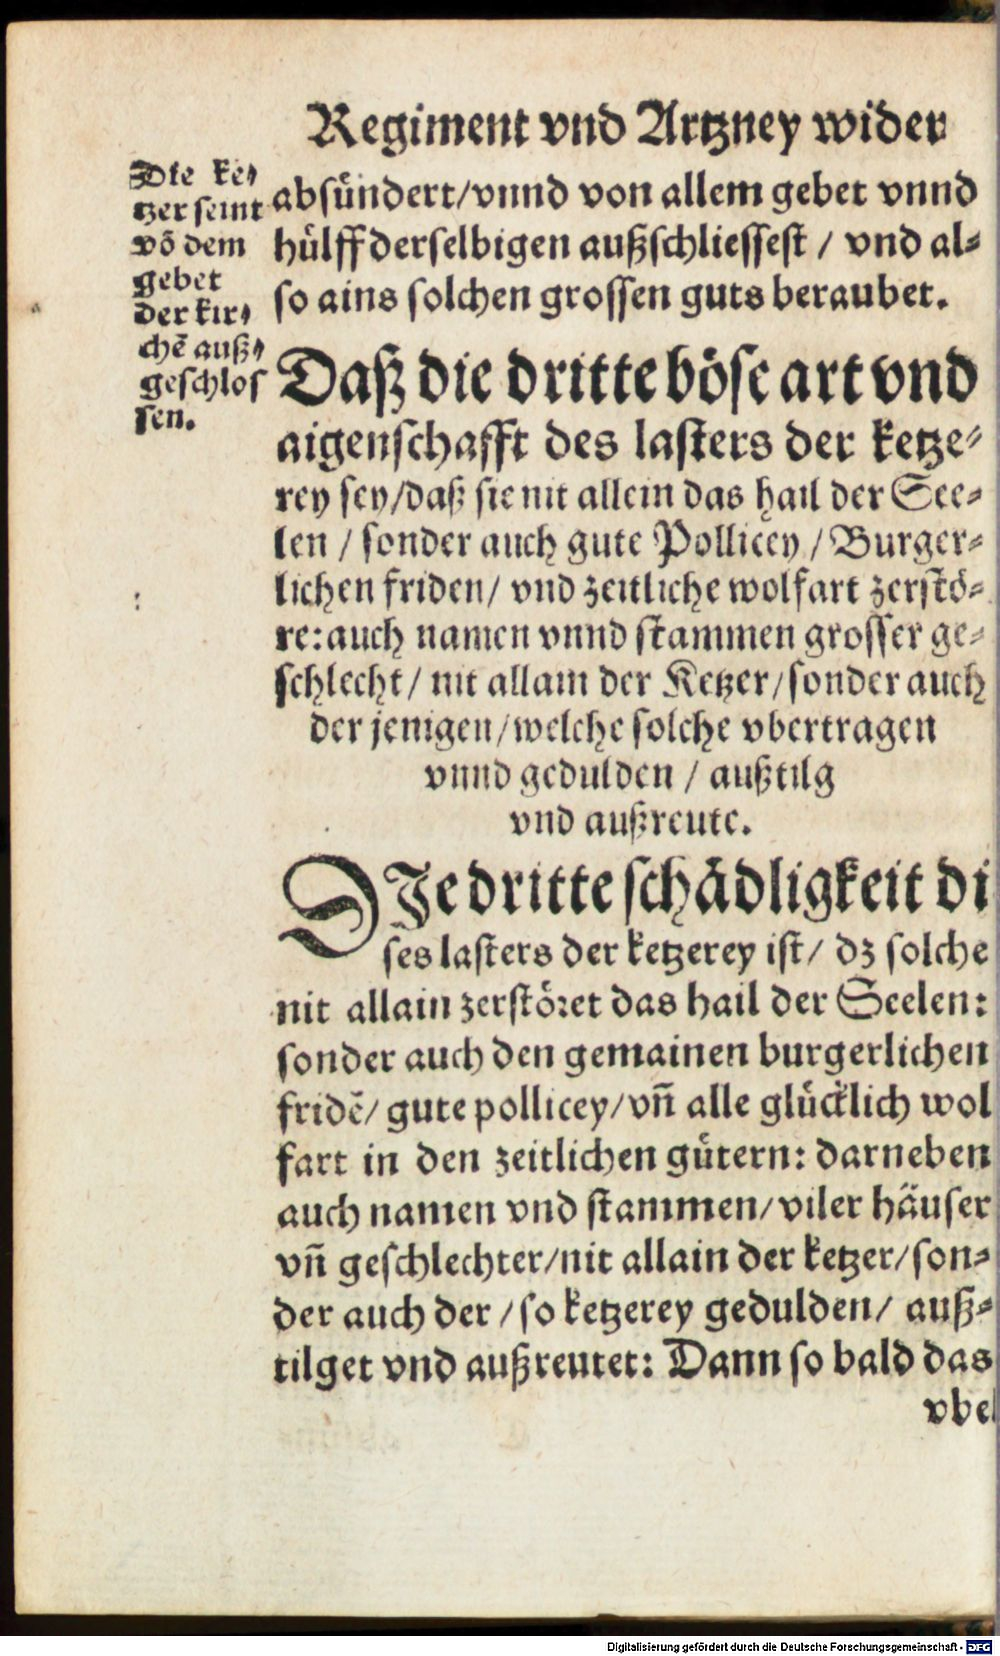 Regiment vnd Artzney wider
Die ke-
tzer seint
võ dem
gebet
der kir-
chẽ auß-
geschlos
sen.
absündert/vnnd von allem gebet vnnd
hülff derselbigen außschliessest / vnd al-
so ains solchen grossen guts beraubet.
Daß die dritte böse art vnd
aigenschafft des lasters der ketze-
rey sey/daß sie nit allein das hail der See-
len / sonder auch gute Pollicey / Burger-
lichen friden/ vnd zeitliche wolfart zerstö-
re: auch namen vnnd stammen grosser ge-
schlecht/ nit allain der Ketzer/sonder auch
der jenigen/welche solche vbertragen
vnnd gedulden / außtilg
vnd außreute.
DJe dritte schädligkeit di
ses lasters der ketzerey ist/ dz solche
nit allain zerstöꝛet das hail der Seelen:
sonder auch den gemainen burgerlichen
fridẽ/ gute pollicey/vñ alle glücklich wol
fart in den zeitlichen gütern: darneben
auch namen vnd stammen/viler häuser
vñ geschlechter/nit allain der ketzer/son-
der auch der /so ketzerey gedulden/ auß-
tilget vnd außreutet: Dann so bald das
vbel
Digitalisierung gefördert durch die Deutsche Forschungsgemeinschaft - DFG